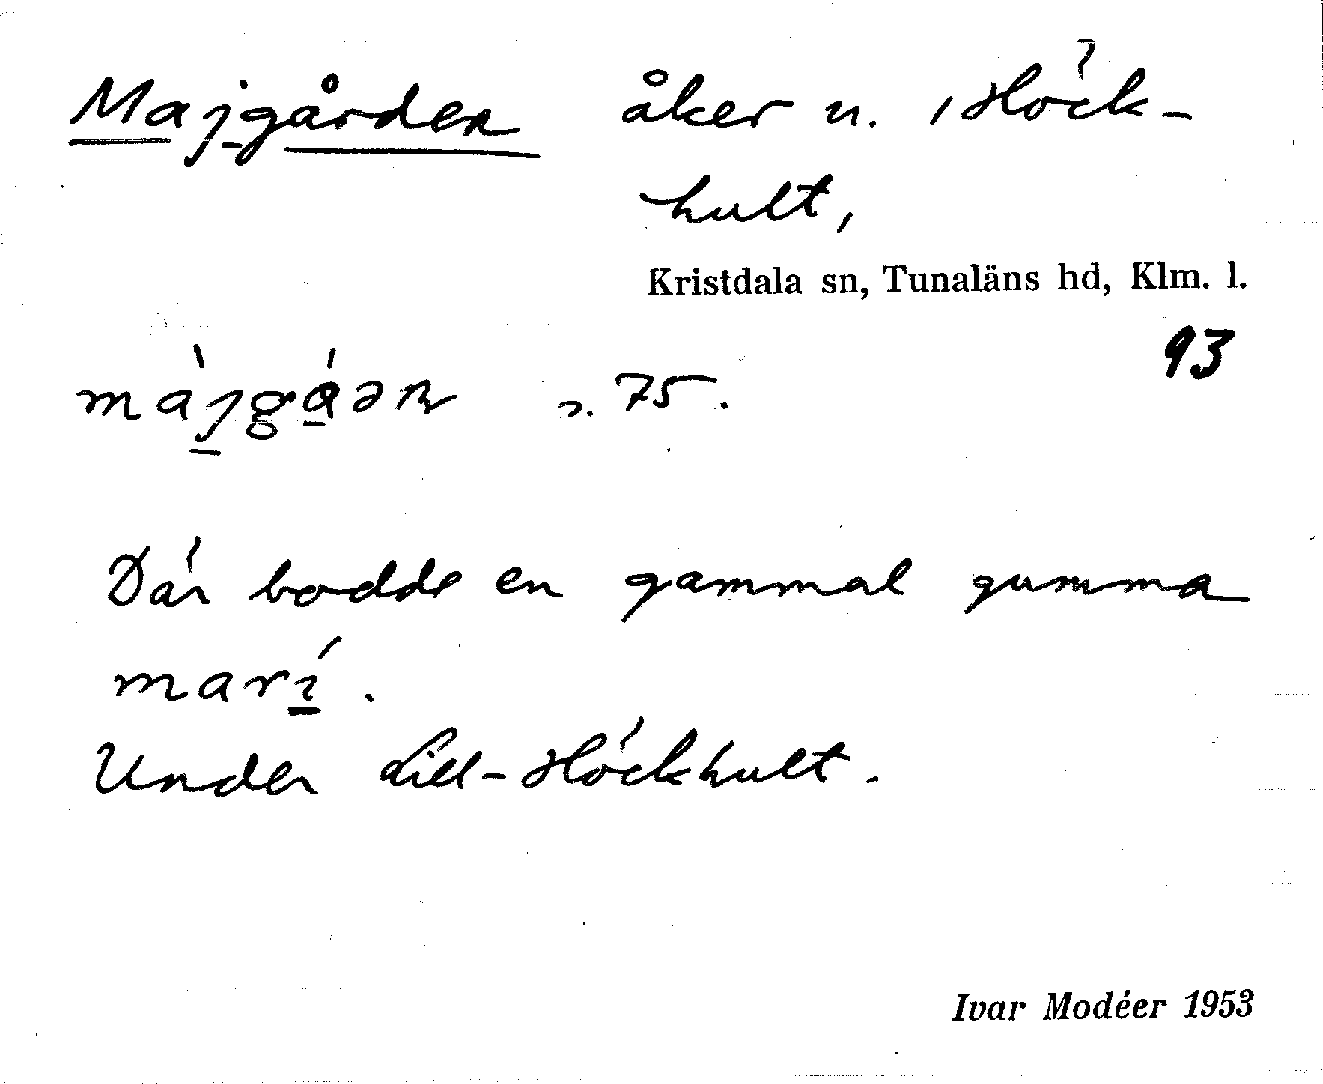 Majgården åker n. i Höck-
hult,
Kristdala sn, Tunaläns hd, Klm. l.
93
màjgá̱ən n. 75.
Där bodde en gammal gumma
marí.
Under Lill-Höckhult.
Ivar Modéer 1953